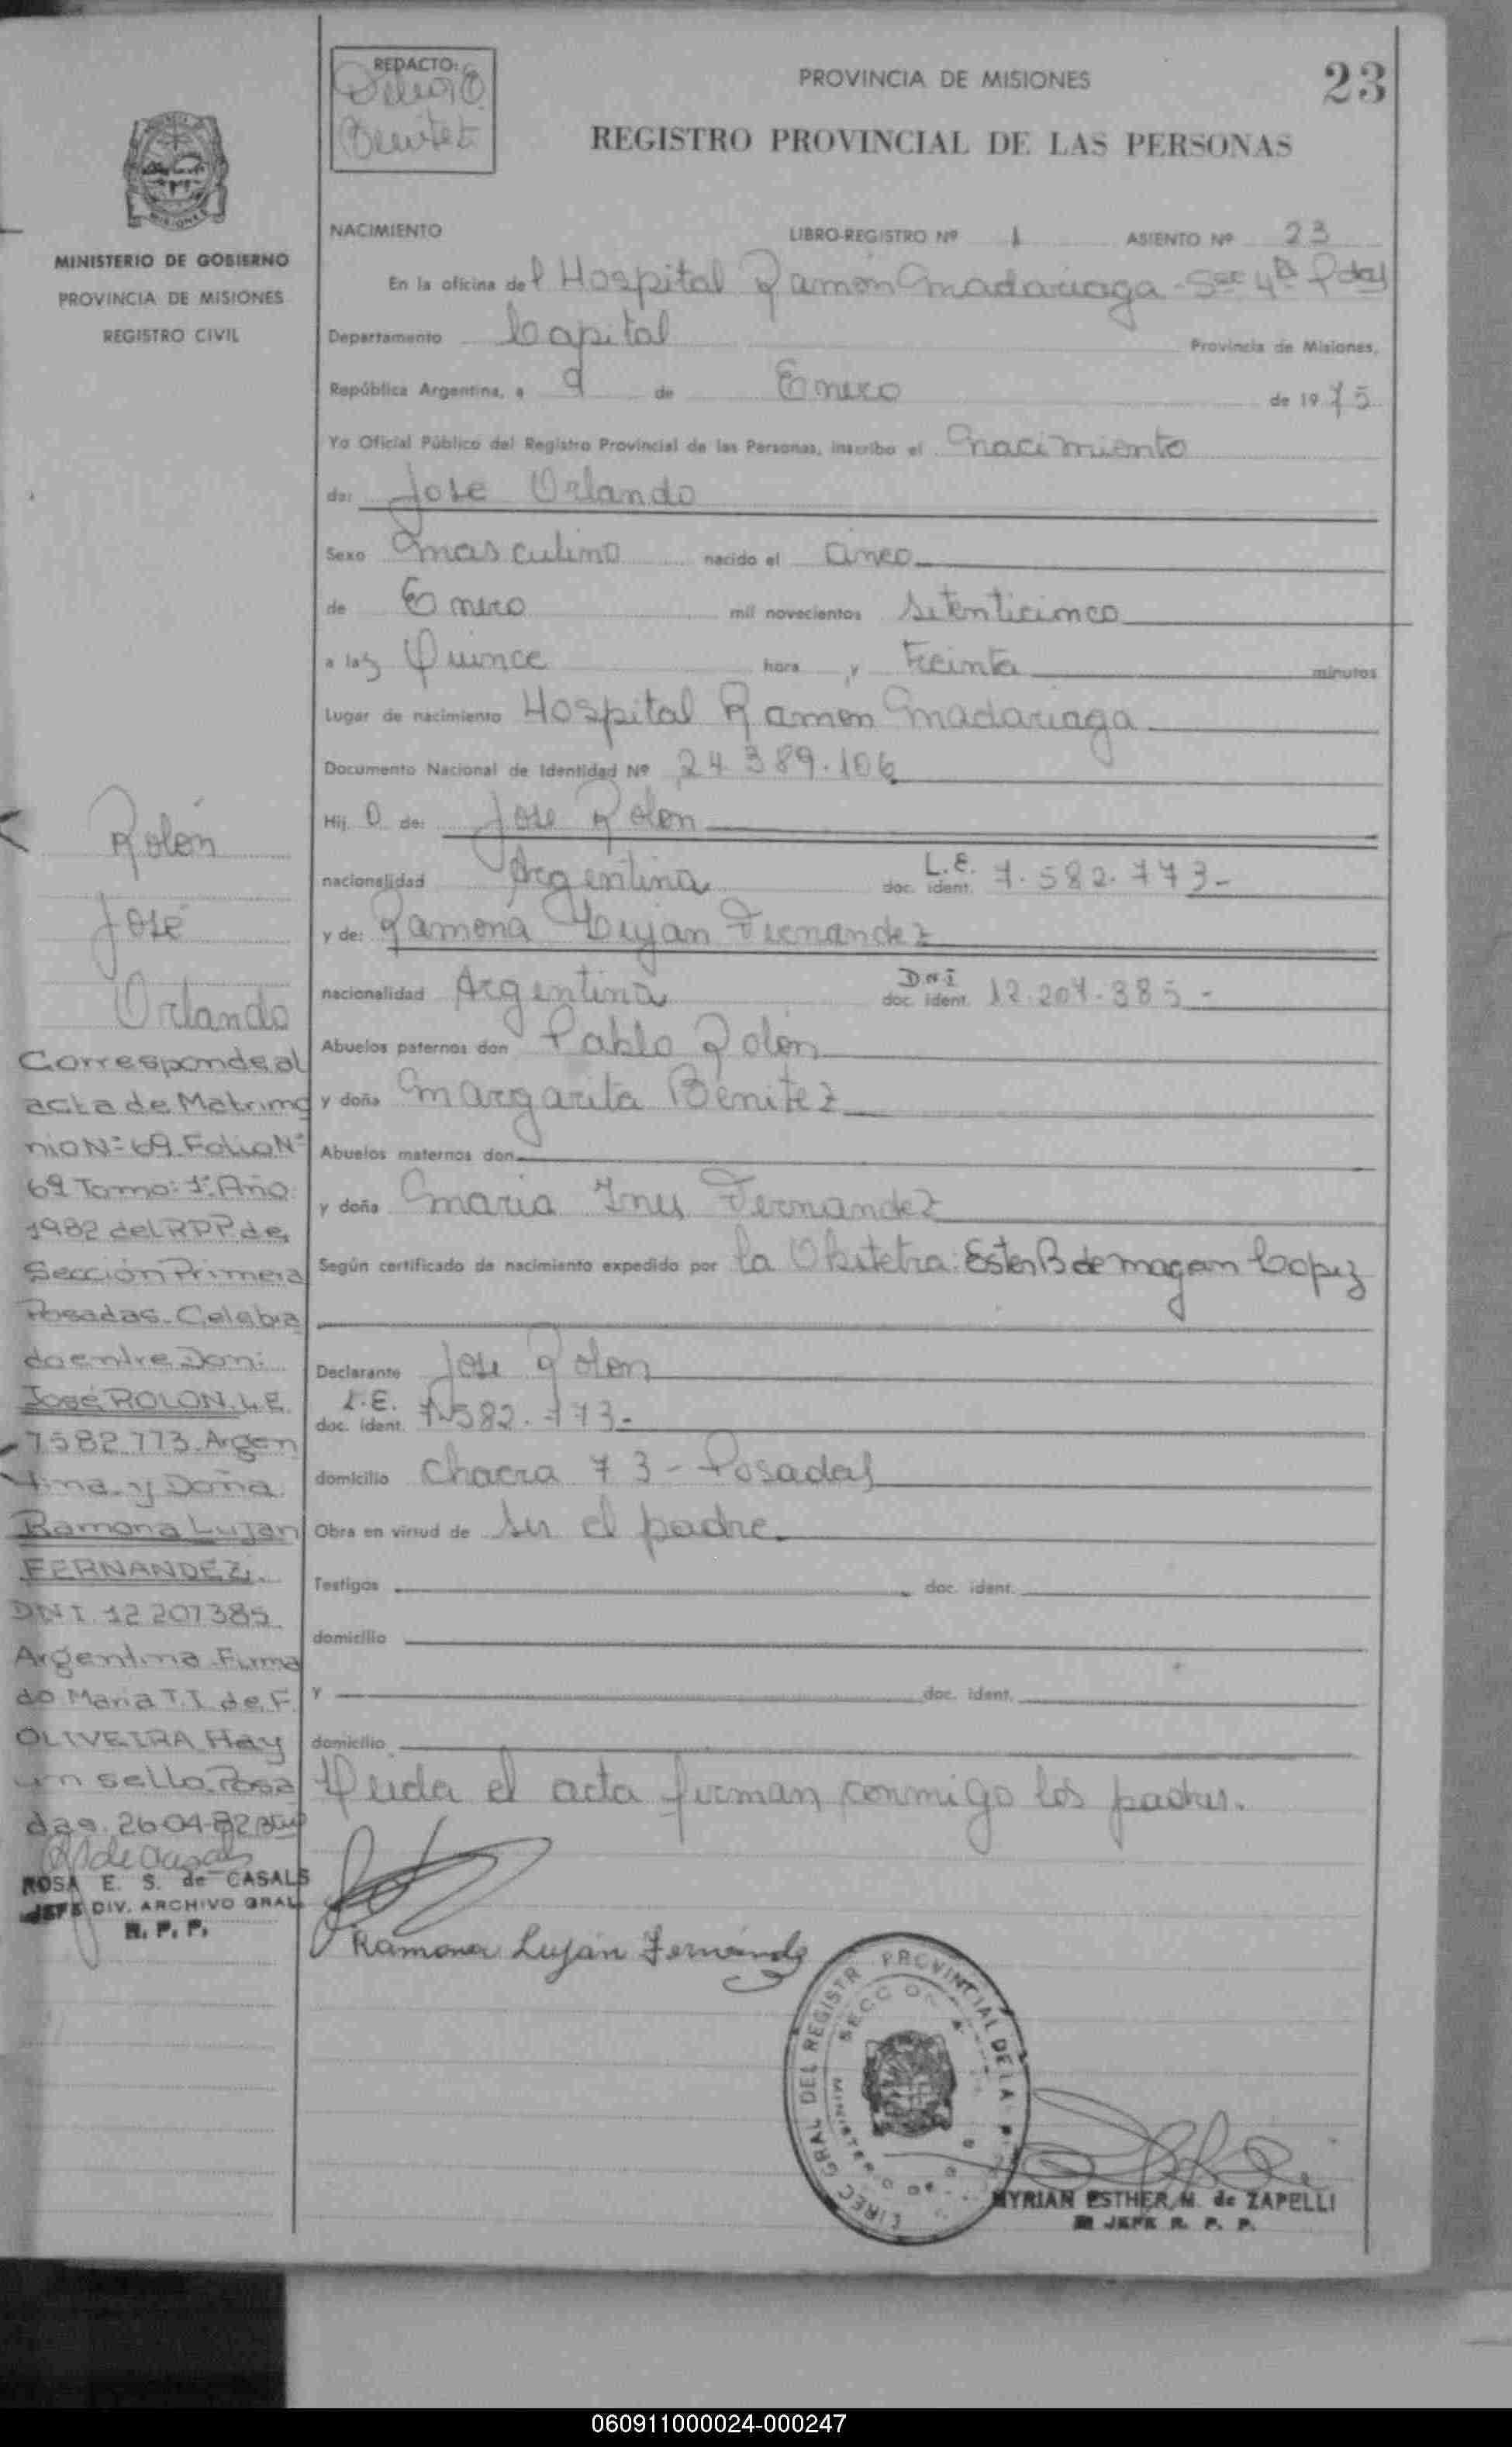 REDACTO:
Benitez
PROVINCIA DE MISIONES
23
REGISTRO PROVINCIAL DE LAS PERSONAS
MINISTERIO DE GOBIERNO
PROVINCIA DE MISIONES
REGISTRO CIVIL
NACIMIENTO LIBRO-REGISTRO Nº 1 ASIENTO Nº 23
En la oficina del Hospital Ramón Madariaga - Sec 4ª Pdas
Departamento Capital Provincia de Misiones,
República Argentina, a 9 de Enero de 1975
Yo Oficial Público del Registro Provincial de las Personas, inscribo el nacimiento
de: Jose Orlando
Sexo masculino nacido el cinco
de Enero mil novecientos setenticinco
a las Quince hora y Treinta minutos
Lugar de nacimiento Hospital Ramon Madariaga
Documento Nacional de Identidad Nº 24.389.106
Hijo de: Jose Rolon
nacionalidad Argentina L.E. doc. ident. 7.582.773-
y de: Ramona Lujan Fernandez
nacionalidad Argentina DNI doc. ident. 12.207.385-
Abuelos paternos don Pablo Rolón
y doña Margarita Benitez
Abuelos maternos don
y doña Maria Ines Fernandez
Según certificado de nacimiento expedido por la Obstetra: Ester B de Magan Lopez
Declarante Jose Rolon
L.E. doc. ident. 7.582.773-
domicilio Chacra 73 - Posadas
Obra en virtud de ser el padre.
Testigos doc. ident.
domicilio
y doc. ident.
domicilio
Leida el acta firman conmigo los padres.
Ramona Luján Fernandez
Rolón
José
Orlando
Corresponde al
acta de Matrimo
nio Nº 69 Folio Nº
69 Tomo: 1º Año
1982 del RPP de
Sección Primera
Posadas. Celebra
do entre Don:
José ROLON. L.E.
7582.773. Argen
tina y Doña
Ramona Lujan
FERNANDEZ.
DNI. 12207385
Argentina. Firma
do Maria T.I. de F.
OLIVEIRA Hay
un sello. Posa
das. 26-04-82
ROSA E. S. de CASALS
JEFE DIV. ARCHIVO GRAL.
R. P. P.
DIREC GRAL DEL REGISTR PROVINCIAL DE LA
SECC
MINISTERIO DE
MYRIAN ESTHER M. de ZAPELLI
JEFE R. P. P.
060911000024-000247